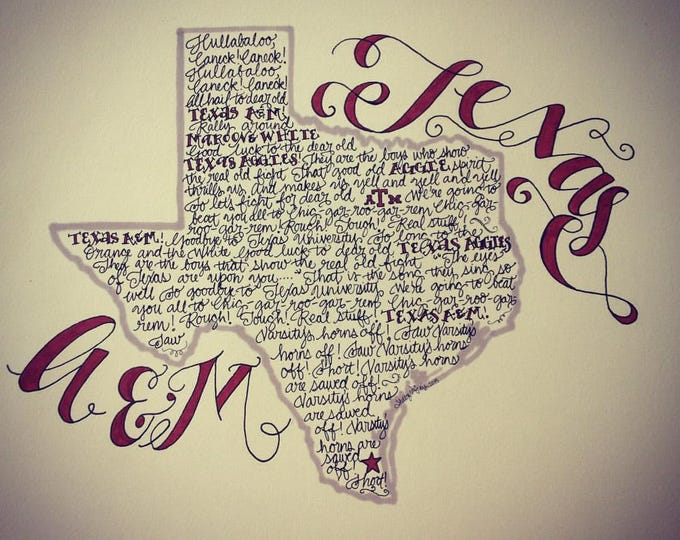 Texas
Hullabaloo,
Caneck! Caneck!
Hullabaloo,
Caneck! Caneck!
all hail to dear old
TEXAS A&M!
Rally around
MAROON & WHITE
Good luck to the dear old
TEXAS AGGIES! They are the boys who show
the real old fight. That good old AGGIE spirit
thrills us. And makes us yell and yell and yell
So let's fight for dear old ATM We're going to
beat you all to Chig-gar-roo-gar-rem Chig-gar-
roo-gar-rem! Rough! Tough! Real stuff!
TEXAS A&M! Goodbye to Texas University. So long to the
Orange and the White Good luck to dear old TEXAS AGGIES
They are the boys that show the real old fight. "The eyes
of Texas are upon you...." That is the song they sing so
well So goodbye to Texas University We're going to beat
you all to Chig-gar-roo-gar-rem Chig-gar-roo-gar-
rem! Rough! Tough! Real stuff! TEXAS A&M!
Saw Varsity's horns off! Saw Varsity's
horns off! Saw Varsity's horns
off! Short! Varsity's horns
are sawed off!
Varsity's horns
are sawed
off! Varsity's
horns are
sawed
off!
Short!
A&M